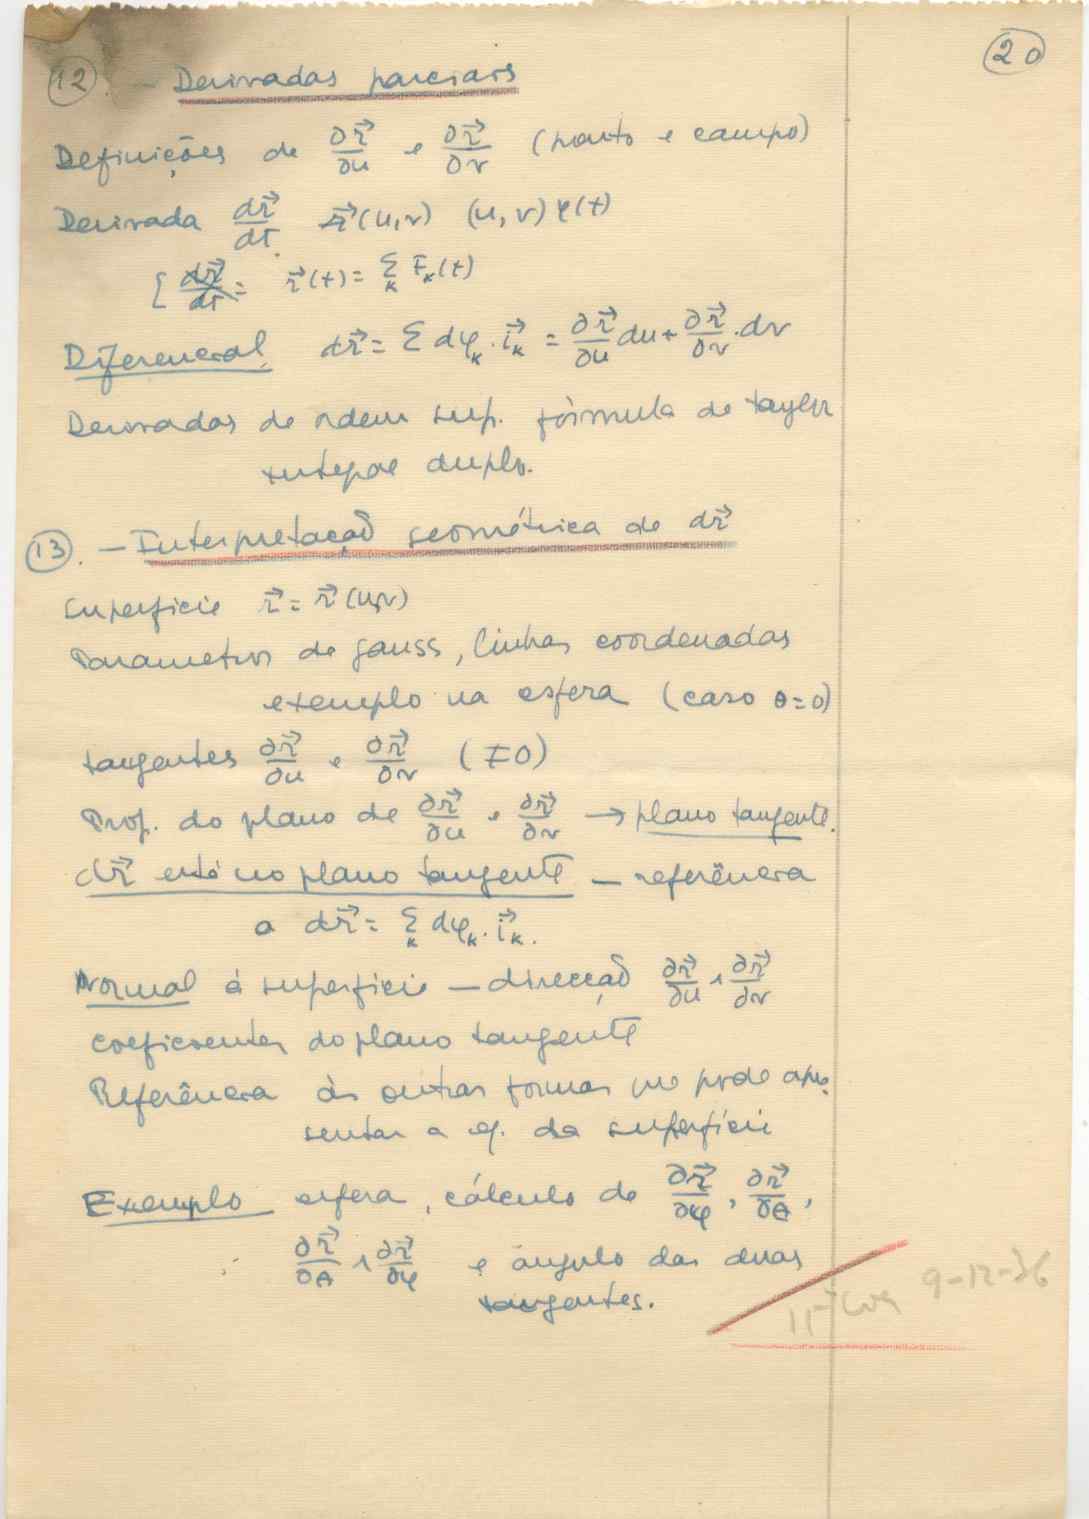 20
12. - Derivadas parciais
Definições de ∂r⃗/∂u e ∂r⃗/∂v (ponto e campo)
Derivada dr⃗/dt r⃗(u,v) (u,v) φ(t)
r⃗(t) = Σ_k F_k(t)
Diferencial, dr⃗ = Σ dφ_k · i⃗_k = ∂r⃗/∂u du + ∂r⃗/∂v · dv
Derivadas de ordem sup. fórmula de Taylor
integral duplo.
13. - Interpretação geométrica de dr⃗
Superfície r⃗ = r⃗(u,v)
Parametros de Gauss, linhas coordenadas
exemplo na esfera (caso θ=0)
tangentes ∂r⃗/∂u e ∂r⃗/∂v (≠0)
Prop. do plano de ∂r⃗/∂u e ∂r⃗/∂v → plano tangente.
dr⃗ está no plano tangente — referência
a dr⃗ = Σ_k dφ_k · i⃗_k.
Normal à superfície — direcção ∂r⃗/∂u ∧ ∂r⃗/∂v
coeficientes do plano tangente
Referência às outras formas que pode apre-
sentar a eq. da superfície
Exemplo esfera, cálculo de ∂r⃗/∂φ, ∂r⃗/∂θ,
∂r⃗/∂θ ∧ ∂r⃗/∂φ e ângulo das duas
tangentes.
9-12-36